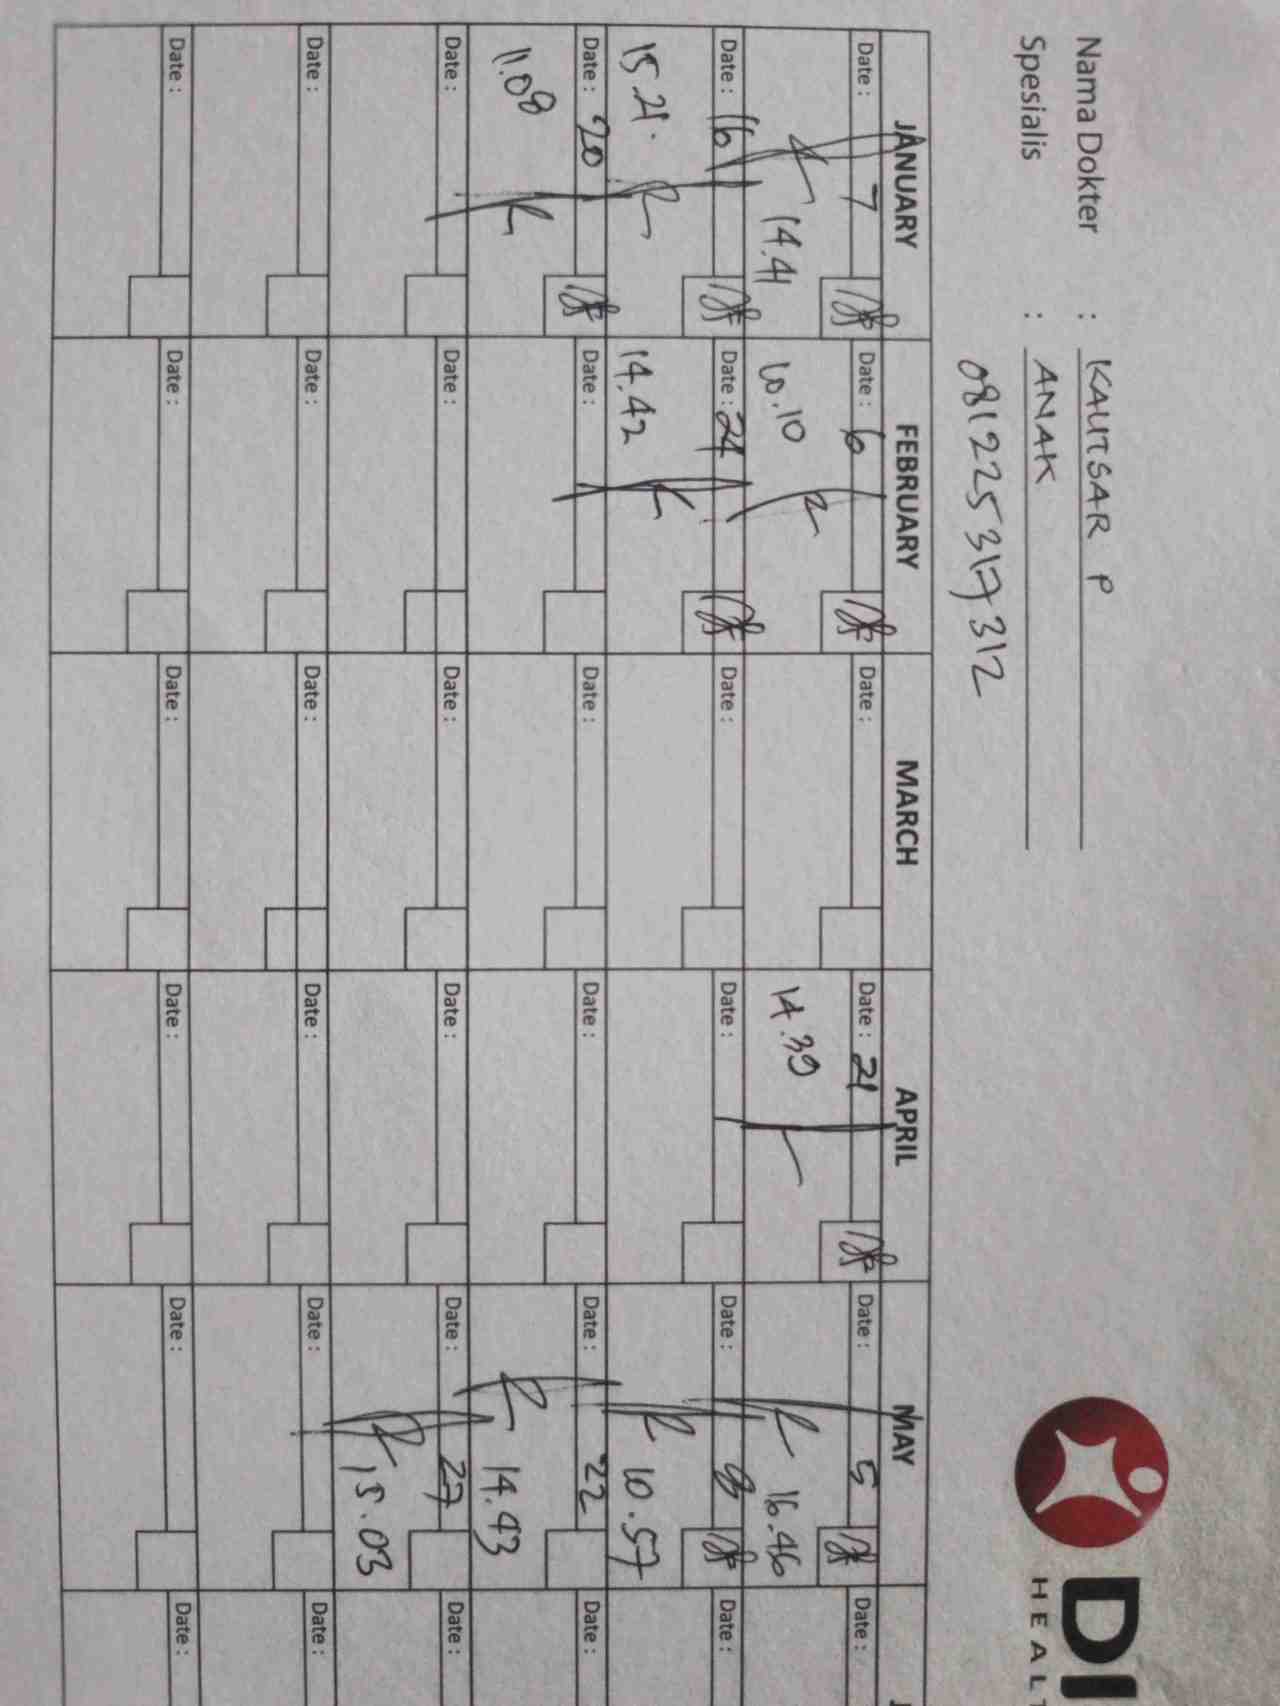 Nama Dokter : KAUTSAR P
Spesialis : ANAK
081225317312
DI
HEAL
JANUARY FEBRUARY MARCH APRIL MAY
Date : 7 Date : 6 Date : Date : 21 Date : 5 Date :
14.41 10.10 14.39 16.46
Date : 16 Date : 24 Date : Date : Date : 8 Date :
15.21 14.42 10.57
Date : 20 Date : Date : Date : Date : 22 Date :
11.08 14.43
Date : Date : Date : Date : Date : 27 Date :
15.03
Date : Date : Date : Date : Date : Date :
Date : Date : Date : Date : Date : Date :